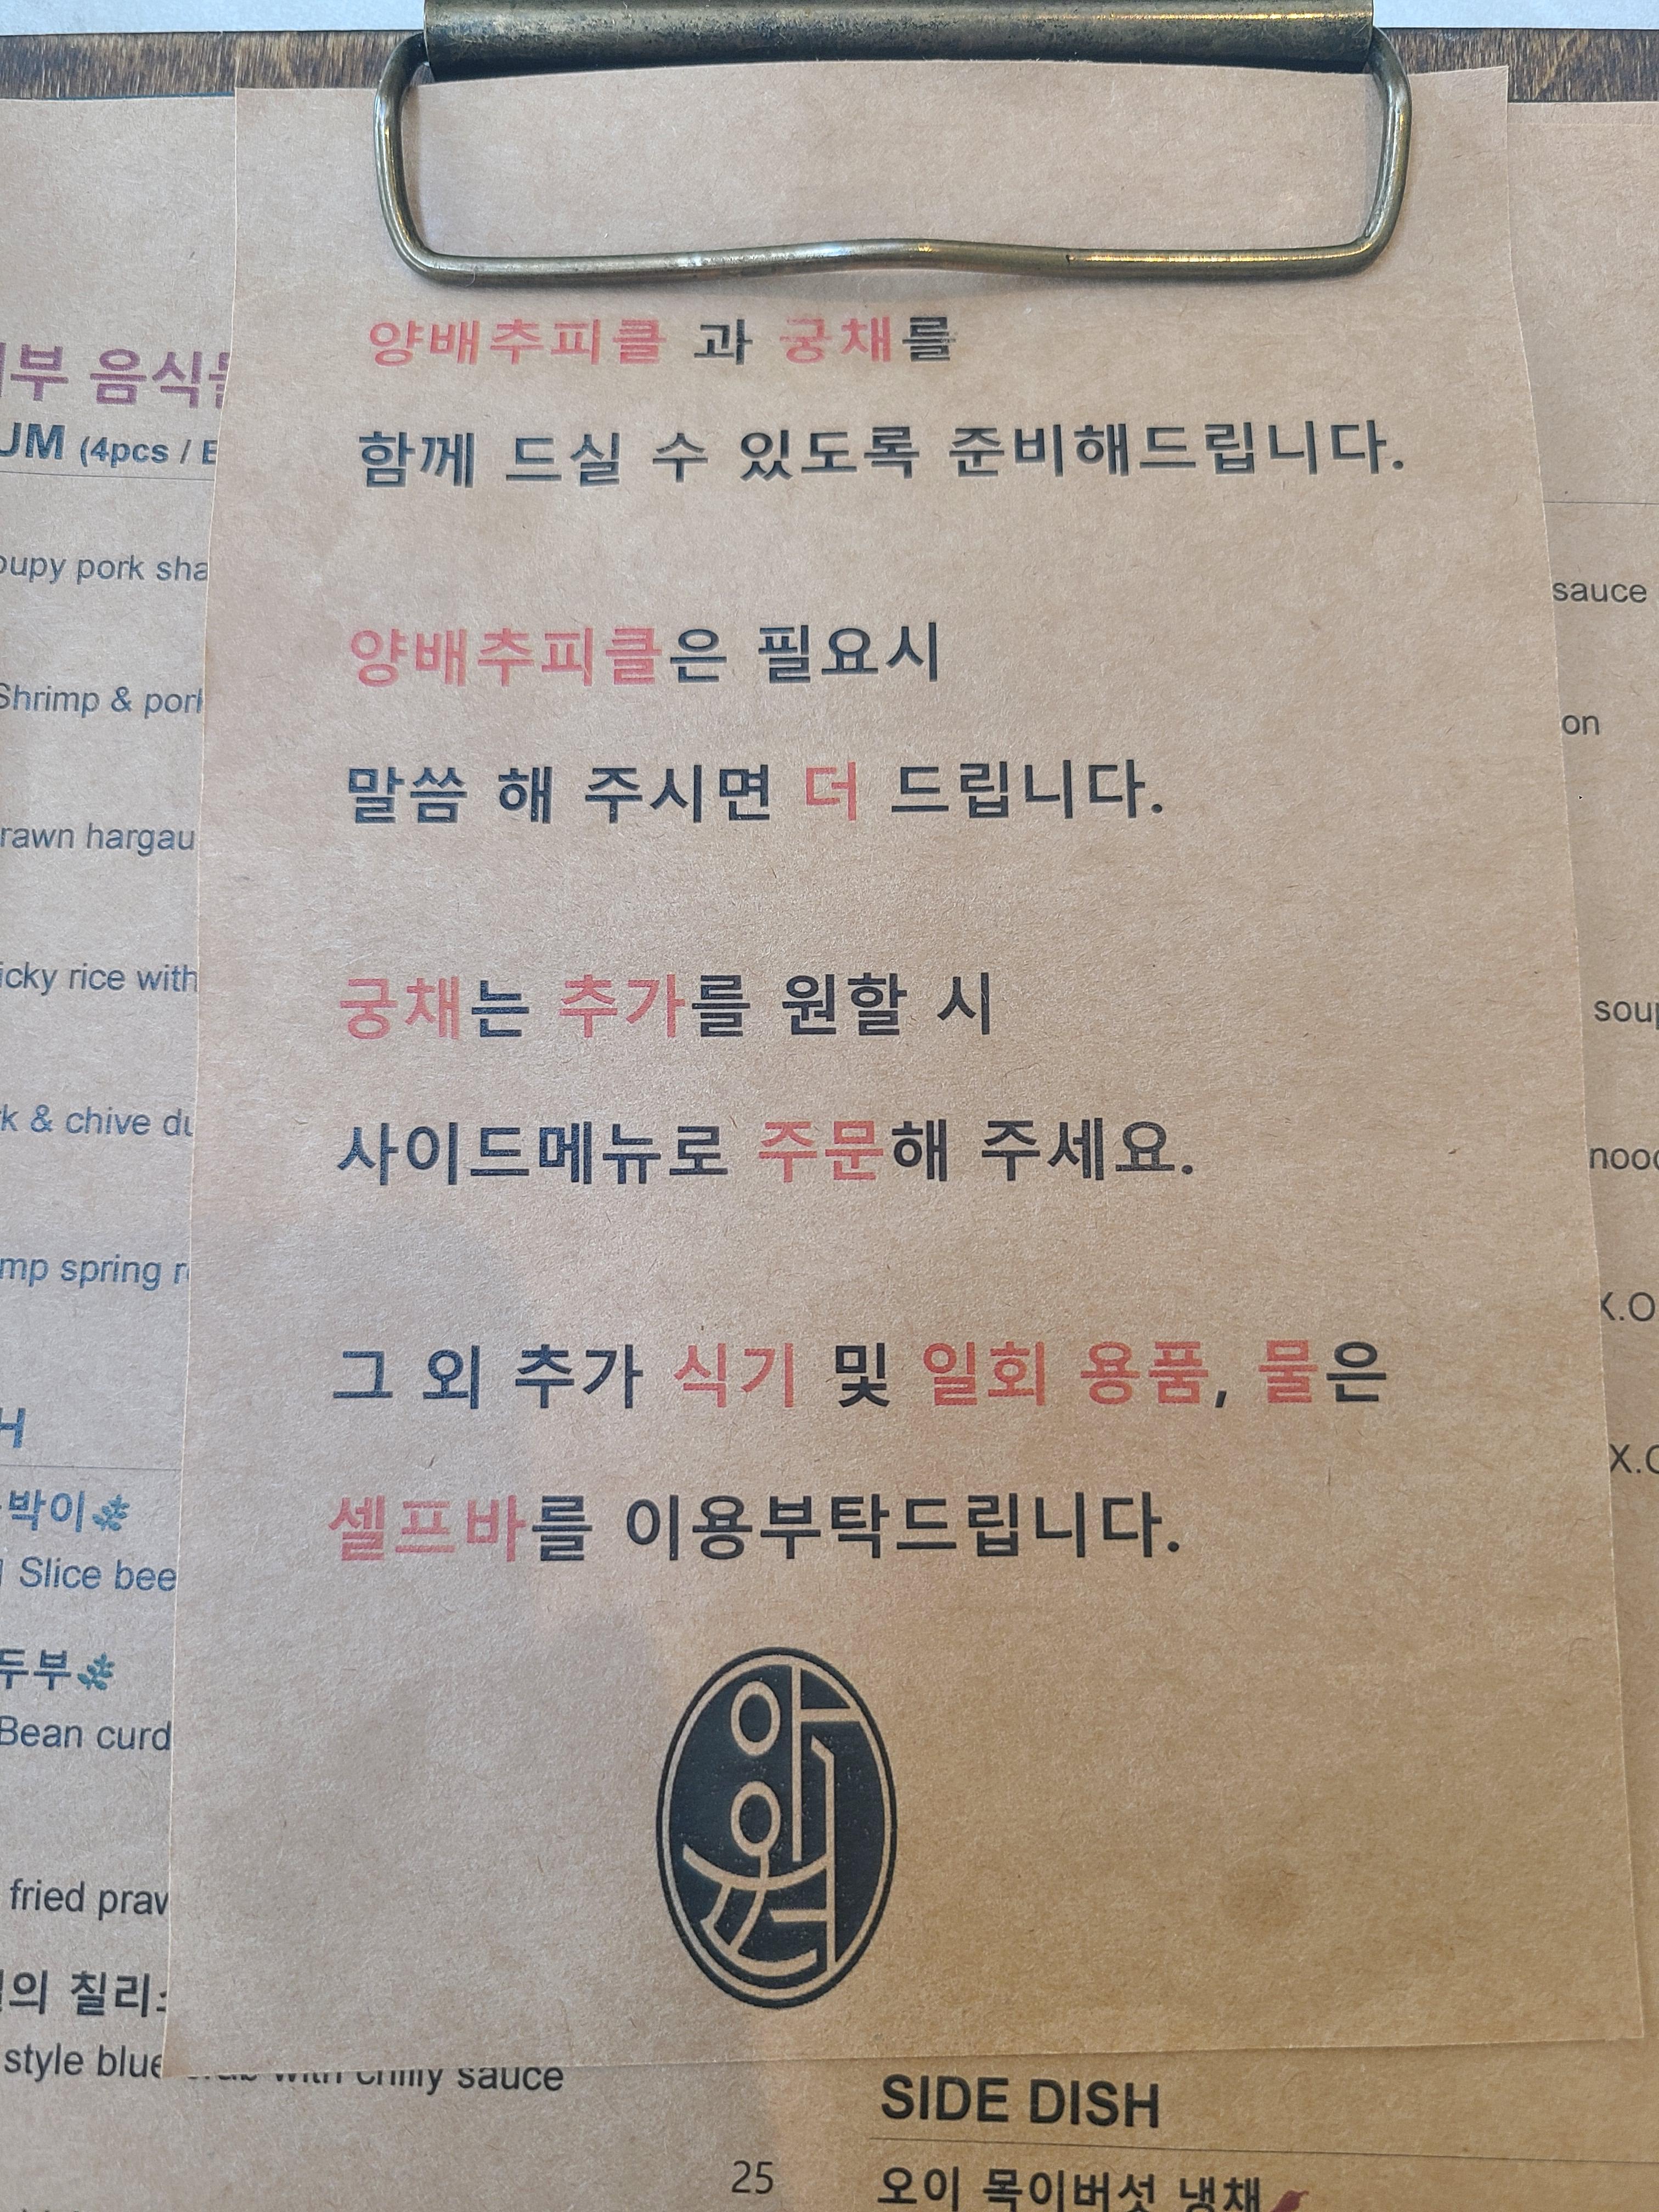 양배추피클 과 궁채를
함께 드실 수 있도록 준비해드립니다.
양배추피클은 필요시
말씀 해 주시면 더 드립니다.
궁채는 추가를 원할 시
사이드메뉴로 주문해 주세요.
그 외 추가 식기 및 일회 용품, 물은
셀프바를 이용부탁드립니다.
음식
(4pcs /
pork
Shrimp & pork
hargau
rice with
& chive
spring
박이
Slice
두부
Bean curd
fried
칠리
style
with chilly sauce
25
sauce
on
SIDE DISH
오이 목이버섯 냉채